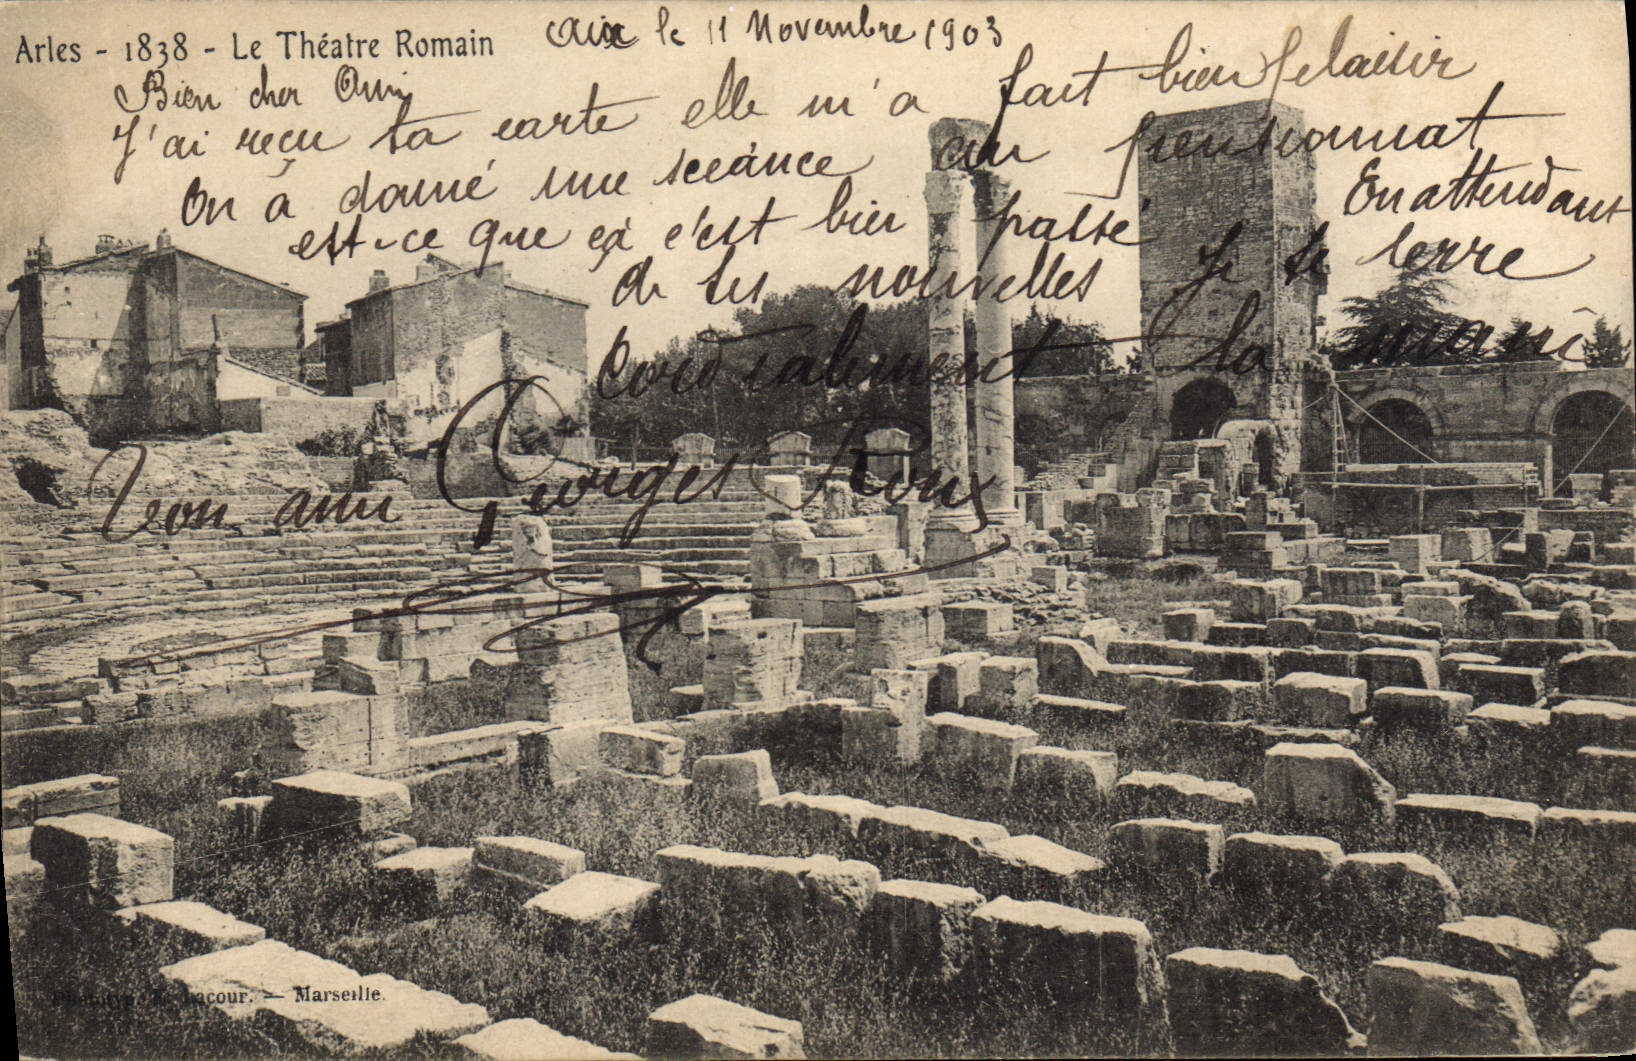 Arles - 1838 - Le Théatre Romain
Aix le 11 Novembre 1903
Bien cher Ami
J'ai reçu ta carte elle m'a fait bien plaisir
On à donné une scéance au pensionnat
est-ce que çà c'est bien passé En attendant
de tes nouvelles Je te serre
Cordialement la main
Ton ami Georges Roux
Phototypie Lacour. — Marseille.